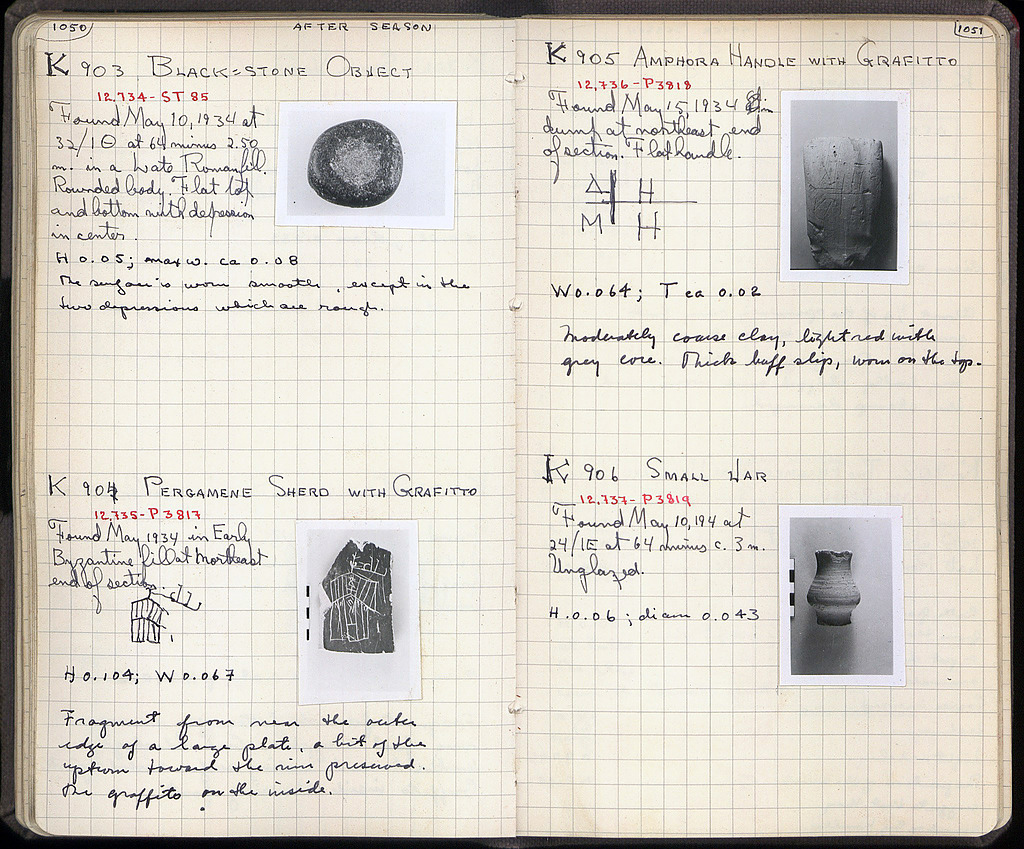 1050
AFTER SEASON
K 903 BLACK=STONE OBJECT
12,734 - ST 85
Found May 10, 1934 at
32/1Θ at 64 minus 2.50
m. in a Late Roman fill.
Rounded body. Flat top
and bottom with depression
in center.
H 0.05; max w. ca 0.08
The surface is worn smooth, except in the
two depressions which are rough.
K 904 PERGAMENE SHERD WITH GRAFITTO
12,735 - P 3817
Found May 1934 in Early
Byzantine fill at Northeast
end of section
H 0.104; W 0.067
Fragment from near the outer
edge of a large plate, a bit of the
upturn toward the rim preserved.
The graffito on the inside.
1051
K 905 AMPHORA HANDLE WITH GRAFITTO
12,736 - P3818
Found May 15, 1934 in
dump at northeast end
of section. Flat handle.
Δ H
M H
W 0.064; T ca 0.02
Moderately coarse clay, light red with
grey core. Thick buff slip, worn on the top.
K 906 SMALL JAR
12,737 - P3819
Found May 10, 194 at
24/1E at 64 minus c. 3 m.
Unglazed.
H. 0.06; diam 0.043